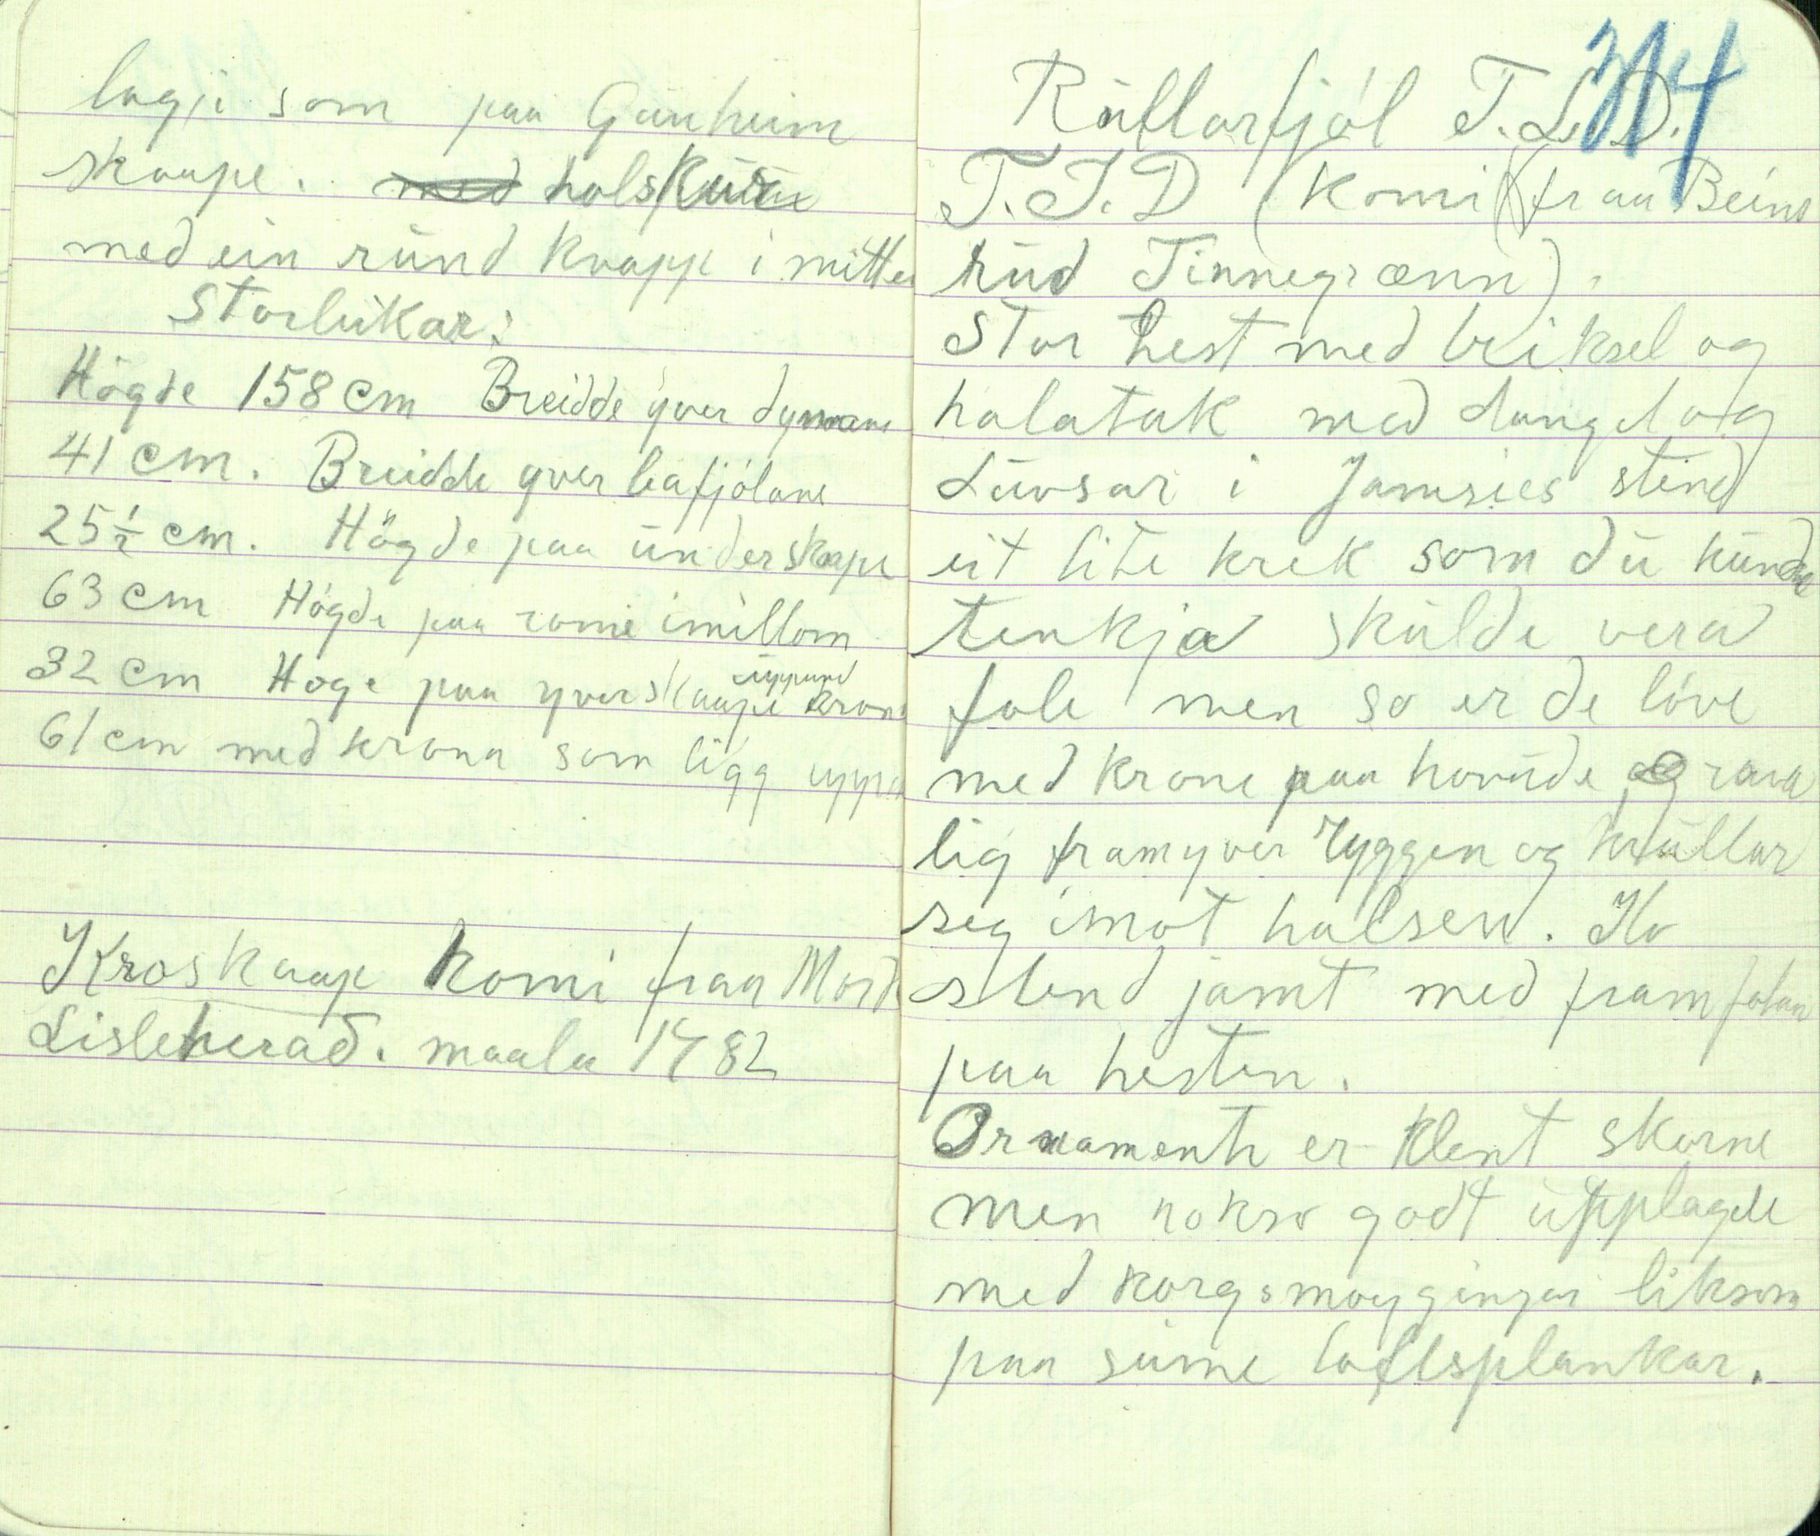 lagji som paa Gauheim
skaape. med holskura
med ein rund knapp i mitten
Storleikar:
Högde 158 cm Breidde yver dynnane
41 cm. Breidde yver leafjólane
25 1/2 cm. Högde paa underskape
63 cm Högde paa rome imillom
32 cm Hoge paa yverskaape uppund krone
61 cm med krona som ligg uppa
Kroskaap komi fraa
Lisleherad. maala 1782
314
Rullarfjól T.L.D.
T.J.D (komi (fraa Beins
rud Tinnegrænn).
Stor hest med beiksel og
halatak med dungel og
Luvsar i Jamsies stend
eit lite krek som du kunde
tenkja skulde vera
fole men so er de löve
med krone paa hovude og rava
lig framyver ryggen og krullar
seg imot halsen. Ho
stend jamt med framfotan
paa hesten.
Ornamente er klent skorne
men nokso godt upplagde
med korgsmoygingar liksom
paa sume loftsplankar.